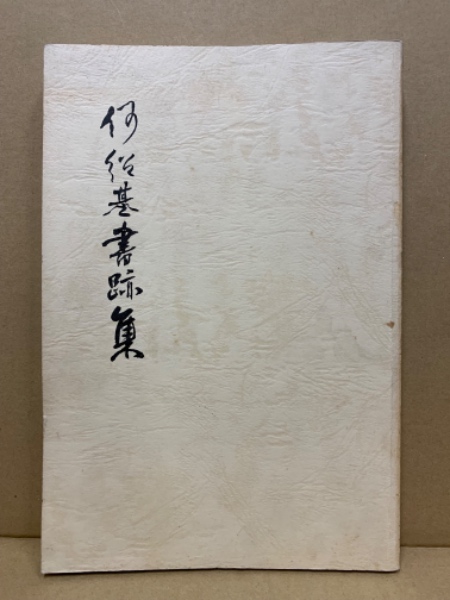 何紹基書跡集